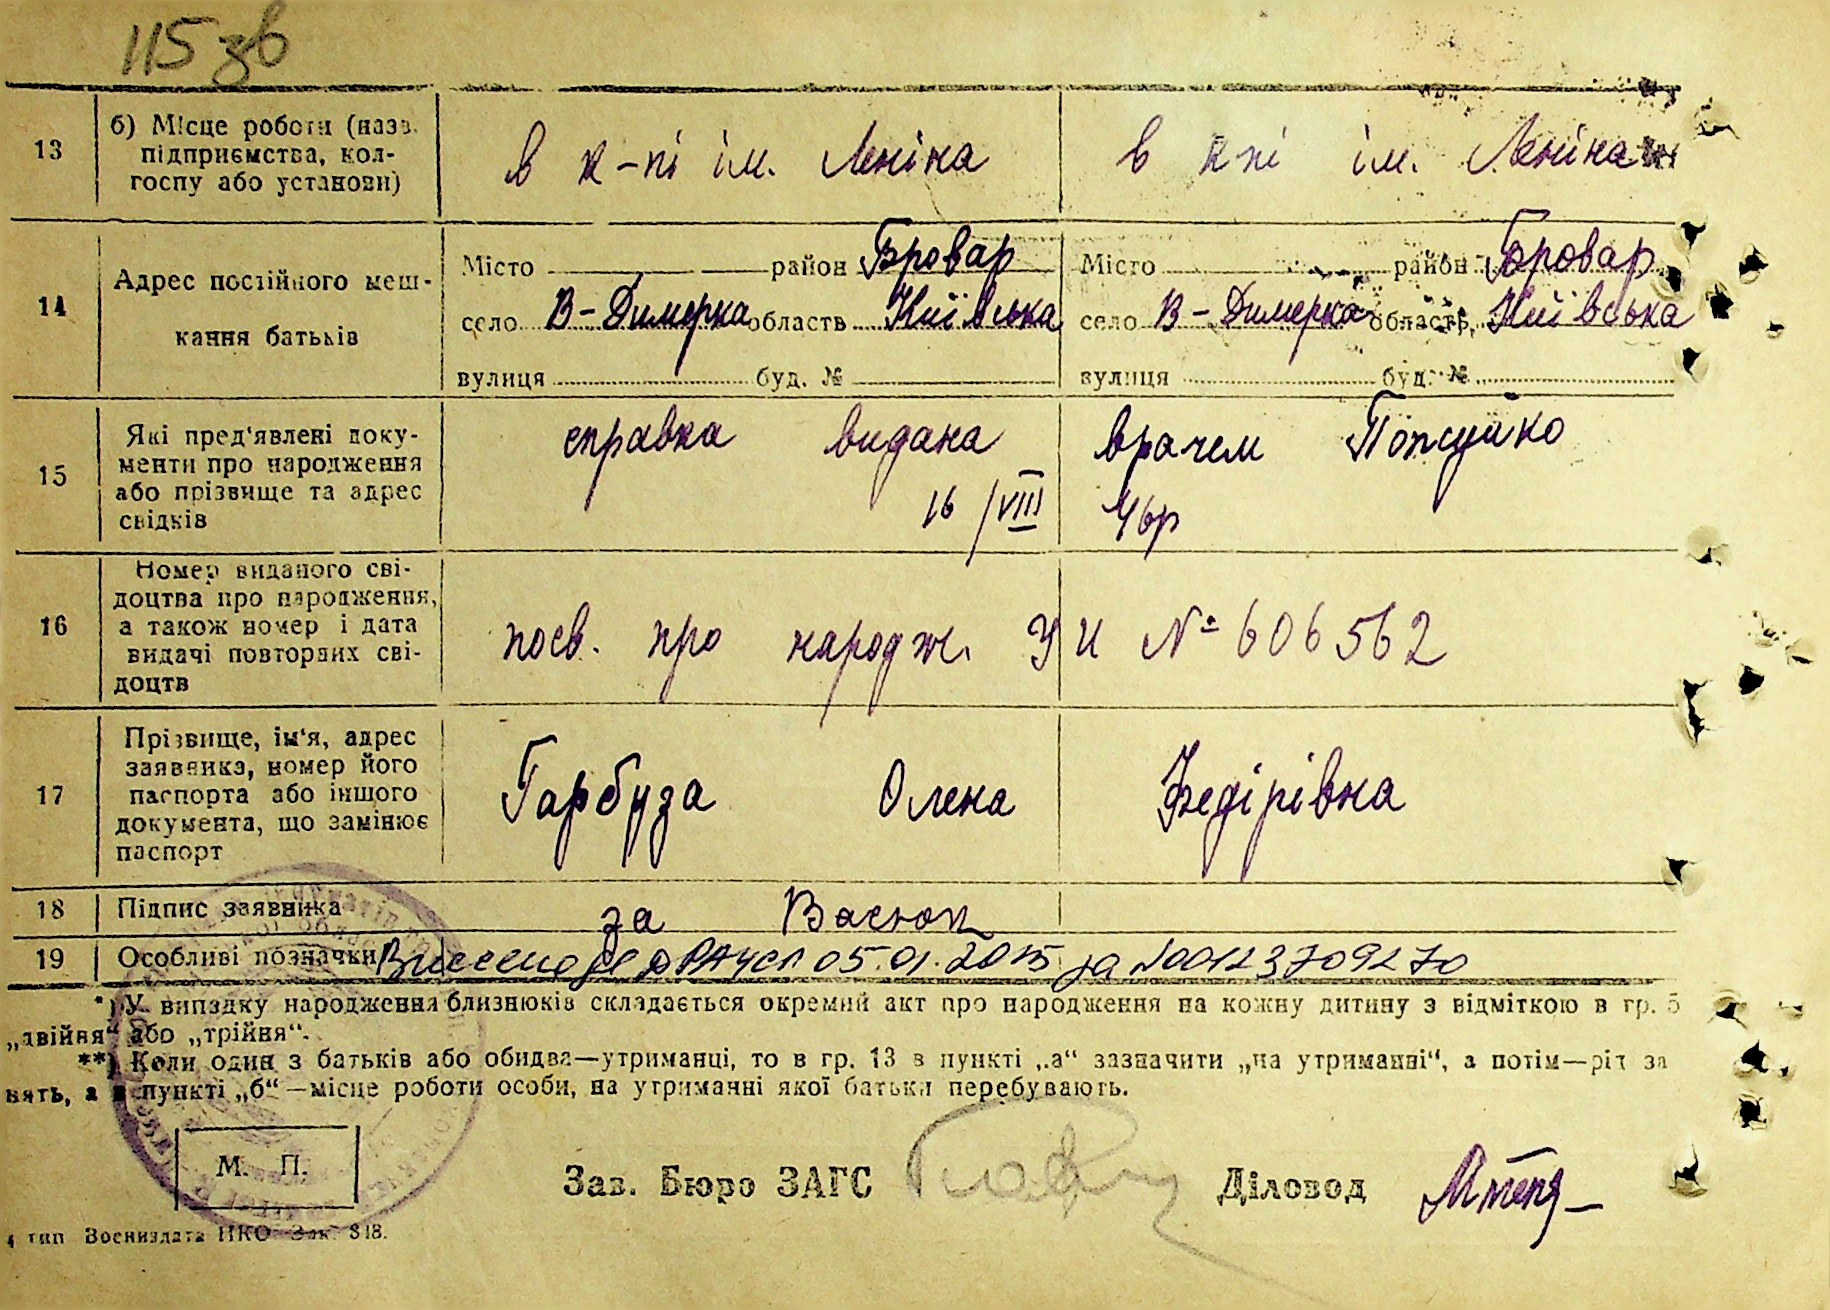 115 зв
13 б) Місце роботи (назв. підприємства, колгоспу або установи) в к-пі ім. Леніна в к-пі ім. Леніна
14 Адрес постійного мешкання батьків
Місто район Бровар Місто район Бровар
село В-Димерка область Київська село В-Димерка область Київська
вулиця буд. № вулиця буд. №
15 Які пред'явлені документи про народження або прізвище та адрес свідків
справка видана врачем
16/VIII 46р
16 Номер виданого свідоцтва про народження, а також номер і дата видачі повторних свідоцтв
посв. про народж. УИ № 606562
17 Прізвище, ім'я, адрес заявника, номер його паспорта або іншого документа, що замінює паспорт
Гарбуза Олена Федірівна
18 Підпис заявника за
19 Особливі позначки Внесено до ДРАЦСГ 05.01.2015 за №00123709270
*) У випадку народження близнюків складається окремий акт про народження на кожну дитину з відміткою в гр. 5
„двійня“ або „трійня“.
**) Коли один з батьків або обидва—утриманці, то в гр. 13 в пункті „а“ зазначити „на утриманні“, а потім—рід за
нять, а в пункті „б“—місце роботи особи, на утриманні якої батьки перебувають.
М. П.
Зав. Бюро ЗАГС Діловод
4 тип Воениздата НКО Зак. 818.